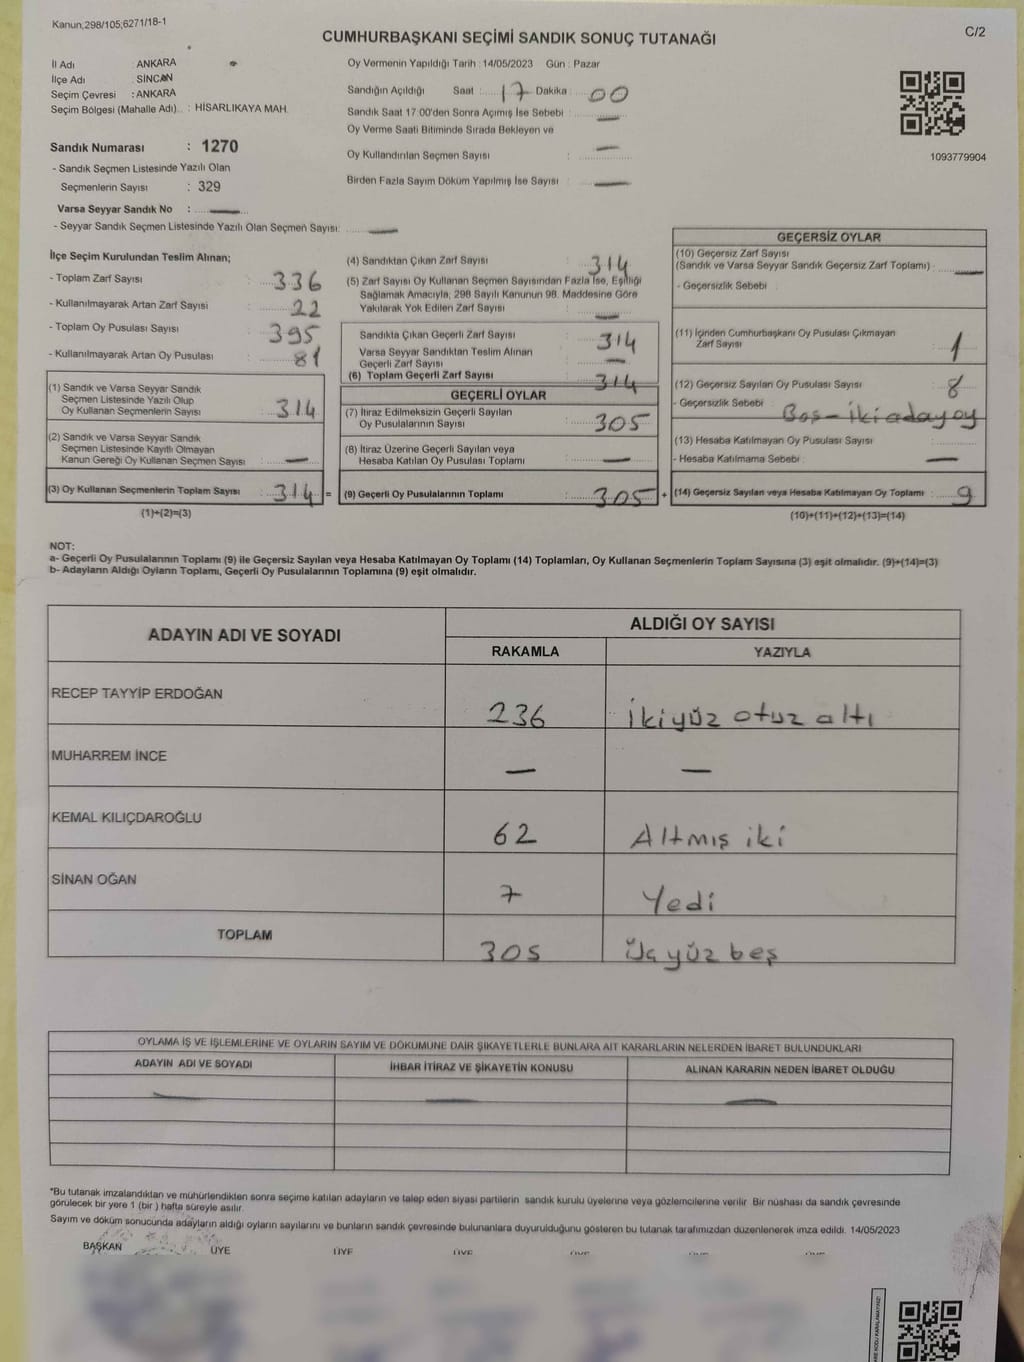 Kanun;298/105;6271/18-1
C/2
CUMHURBAŞKANI SEÇİMİ SANDIK SONUÇ TUTANAĞI
İl Adı : ANKARA
İlçe Adı : SİNCAN
Seçim Çevresi : ANKARA
Seçim Bölgesi (Mahalle Adı) : HİSARLIKAYA MAH.
Oy Vermenin Yapıldığı Tarih : 14/05/2023 Gün : Pazar
Sandığın Açıldığı Saat : 17 Dakika : 00
Sandık Saat 17:00'den Sonra Açımış İse Sebebi : —
Oy Verme Saati Bitiminde Sırada Bekleyen ve
Oy Kullandırılan Seçmen Sayısı : —
Birden Fazla Sayım Döküm Yapılmış İse Sayısı : —
1093779904
Sandık Numarası : 1270
- Sandık Seçmen Listesinde Yazılı Olan
Seçmenlerin Sayısı : 329
Varsa Seyyar Sandık No : —
- Seyyar Sandık Seçmen Listesinde Yazılı Olan Seçmen Sayısı: —
İlçe Seçim Kurulundan Teslim Alınan;
- Toplam Zarf Sayısı : 336
- Kullanılmayarak Artan Zarf Sayısı : 22
- Toplam Oy Pusulası Sayısı : 395
- Kullanılmayarak Artan Oy Pusulası : 81
(1) Sandık ve Varsa Seyyar Sandık
Seçmen Listesinde Yazılı Olup
Oy Kullanan Seçmenlerin Sayısı : 314
(2) Sandık ve Varsa Seyyar Sandık
Seçmen Listesinde Kayıtlı Olmayan
Kanun Gereği Oy Kullanan Seçmen Sayısı : —
(3) Oy Kullanan Seçmenlerin Toplam Sayısı : 314 =
(1)+(2)=(3)
(4) Sandıktan Çıkan Zarf Sayısı : 314
(5) Zarf Sayısı Oy Kullanan Seçmen Sayısından Fazla İse, Eşitliği
Sağlamak Amacıyla, 298 Sayılı Kanunun 98. Maddesine Göre
Yakılarak Yok Edilen Zarf Sayısı : —
Sandıkta Çıkan Geçerli Zarf Sayısı : 314
Varsa Seyyar Sandıktan Teslim Alınan
Geçerli Zarf Sayısı : —
(6) Toplam Geçerli Zarf Sayısı : 314
GEÇERLİ OYLAR
(7) İtiraz Edilmeksizin Geçerli Sayılan
Oy Pusulalarının Sayısı : 305
(8) İtiraz Üzerine Geçerli Sayılan veya
Hesaba Katılan Oy Pusulası Toplamı : —
(9) Geçerli Oy Pusulalarının Toplamı : 305 +
GEÇERSİZ OYLAR
(10) Geçersiz Zarf Sayısı
(Sandık ve Varsa Seyyar Sandık Geçersiz Zarf Toplamı) : —
- Geçersizlik Sebebi :
(11) İçinden Cumhurbaşkanı Oy Pusulası Çıkmayan
Zarf Sayısı : 1
(12) Geçersiz Sayılan Oy Pusulası Sayısı : 8
- Geçersizlik Sebebi : Boş - İki aday oy
(13) Hesaba Katılmayan Oy Pusulası Sayısı :
- Hesaba Katılmama Sebebi : —
(14) Geçersiz Sayılan veya Hesaba Katılmayan Oy Toplamı : 9
(10)+(11)+(12)+(13)=(14)
NOT:
a- Geçerli Oy Pusulalarının Toplamı (9) ile Geçersiz Sayılan veya Hesaba Katılmayan Oy Toplamı (14) Toplamları, Oy Kullanan Seçmenlerin Toplam Sayısına (3) eşit olmalıdır. (9)+(14)=(3)
b- Adayların Aldığı Oyların Toplamı, Geçerli Oy Pusulalarının Toplamına (9) eşit olmalıdır.
ADAYIN ADI VE SOYADI
ALDIĞI OY SAYISI
RAKAMLA YAZIYLA
RECEP TAYYİP ERDOĞAN 236 İkiyüz otuz altı
MUHARREM İNCE — —
KEMAL KILIÇDAROĞLU 62 Altmış iki
SİNAN OĞAN 7 Yedi
TOPLAM 305 Üçyüz beş
OYLAMA İŞ VE İŞLEMLERİNE VE OYLARIN SAYIM VE DÖKÜMÜNE DAİR ŞİKAYETLERLE BUNLARA AİT KARARLARIN NELERDEN İBARET BULUNDUKLARI
ADAYIN ADI VE SOYADI İHBAR İTİRAZ VE ŞİKAYETİN KONUSU ALINAN KARARIN NEDEN İBARET OLDUĞU
— — —
*Bu tutanak imzalandıktan ve mühürlendikten sonra seçime katılan adayların ve talep eden siyasi partilerin sandık kurulu üyelerine veya gözlemcilerine verilir. Bir nüshası da sandık çevresinde
görülecek bir yere 1 (bir ) hafta süreyle asılır.
Sayım ve döküm sonucunda adayların aldığı oyların sayılarını ve bunların sandık çevresinde bulunanlara duyurulduğunu gösteren bu tutanak tarafımızdan düzenlenerek imza edildi. 14/05/2023
BAŞKAN ÜYE ÜYE ÜYE